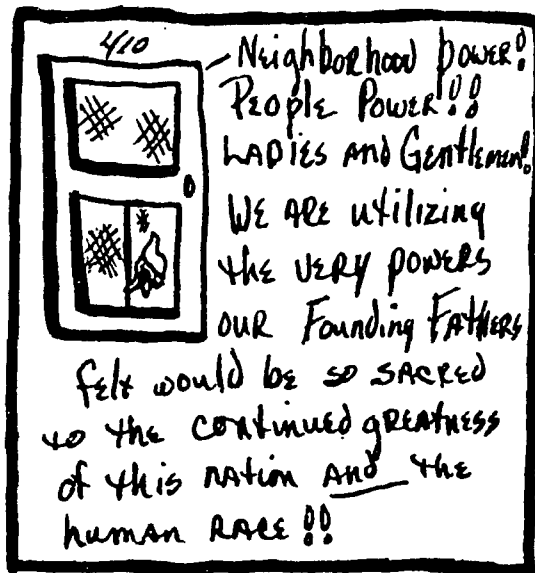 4/10
Neighborhood Power!
People Power!!
LADIES AND Gentlemen!
WE ARE utilizing
the VERY POWERS
OUR Founding FATHERS
felt would be so SACRED
to the continued GREATNESS
of this nation and the
human RACE!!